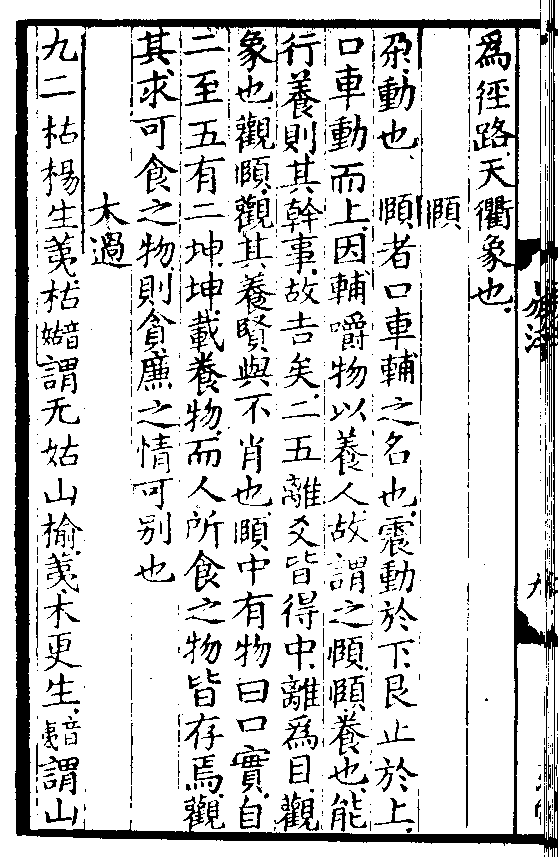 爲徑路天衢象也
頤
朶動也　頤者口車輔之名也震動於下艮止於上
口車動而上因輔嚼物以養人故謂之頤頤養也能
行養則其幹事故吉矣二五離爻皆得中離爲目觀
象也觀頤觀其養賢與不肖也頤中有物曰口實自
二至五有二坤坤載養物而人所食之物皆存焉觀
其求可食之物則貪廉之情可別也
木過
九二枯楊生荑枯音姑謂无姑山榆荑木更生音夷謂山